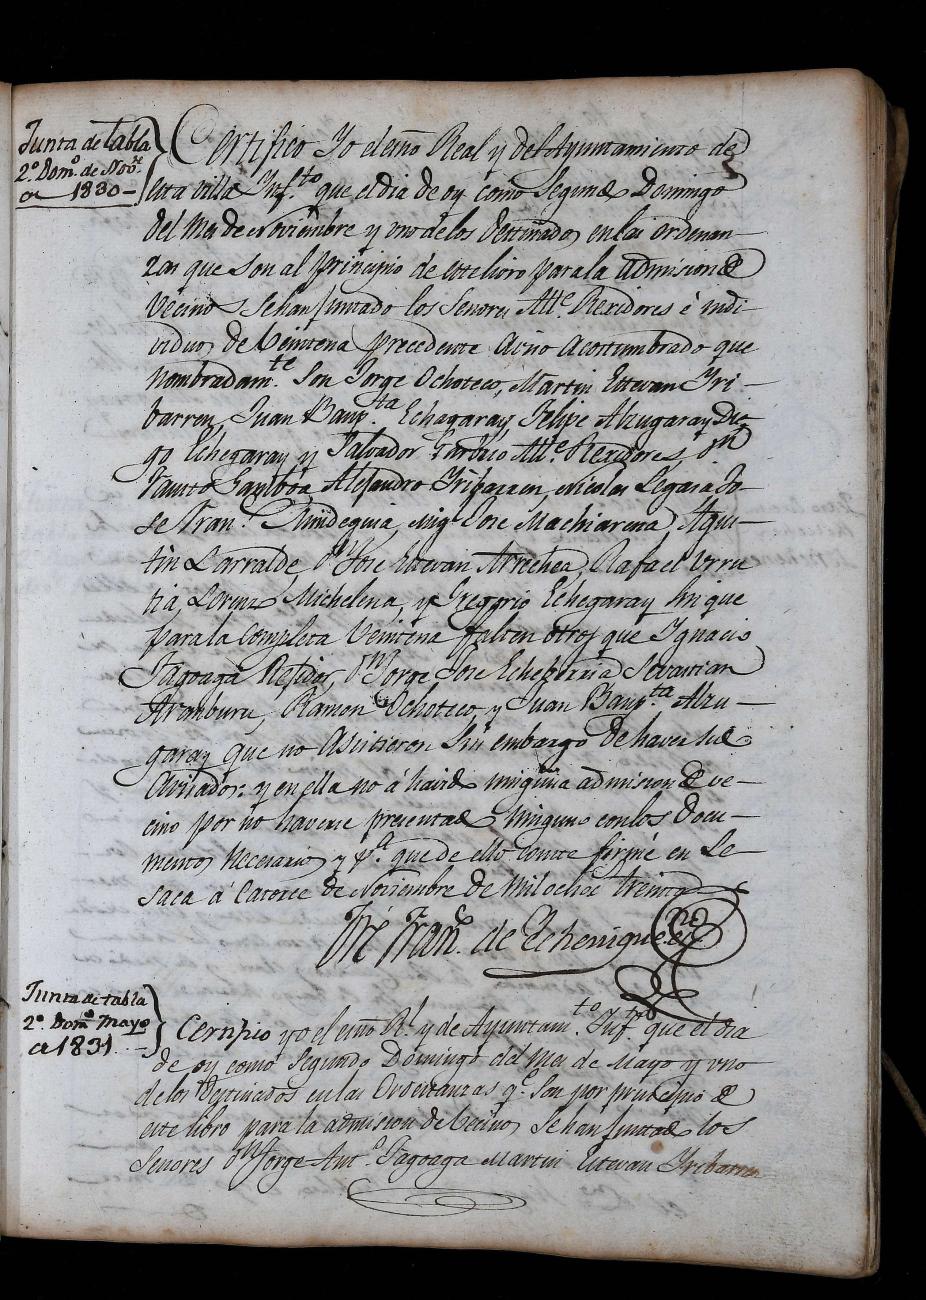 Junta de tabla
2.º Dom.º de Nov.re
a 1830 –
Certifico Yo el esno Real y del Ayuntamiento de
esta villa Inf.to que el dia de oy como Segundo Domingo
del Mes de Noviembre y uno de los destinados en las ordenan–
zas que son al principio de este libro para la admision de
Vecinos Se han juntado los Senores Alle Rexidores é indi–
viduos de Veintena precedente Aviso Acostumbrado que
nombradam.te Son Jorge Ochoteco, Martin Estevan Yri–
barren, Juan Baup.ta Echagaray Felipe Alzugaray Die–
go Echegaray y Salvador Alle Rexidores, Dn
Santos Gamboa Alejandro Yribarren, Nicolas Legasa Jo–
se Fran.co Mig.l Jose Machiarena, Agus–
tin Larralde, Dn Jose Estevan Arrechea, Rafael Urru
tia, Lorenzo Michelena, y Gregorio Echegaray sin que
para la completa Veintena falten otros que Ignacio
Tagoaga Dn Jorge Jose Echeberria Sevastian
Aranburu, Ramon Ochoteco, y Juan Baup.ta Alzu–
garay que no Asistieron Sin embargo de haver sido
Avisados: y en ella no á havido ninguna admision de ve–
cino por no haverse presentado Ninguno con los Docu–
mentos Necesarios y p.a que de ello conste firmé en Le–
saca á Catorce de Noviembre de Mil ochoc treinta
José Fran.co de Echenique esno
Junta de tabla
2.º Dom.º Mayo
a 1831. –
Certifico yo el esno R.l y de Ayuntam.to Inf.to que el dia
de oy como Segundo Domingo del Mes de Mayo y uno
de los Destinados en las Ordenanzas q.e Son por principio de
este libro para la admision de Vecinos Se han juntado los
Senores Dn Jorge Ant.º Tagoaga Martin Estevan Yribarren